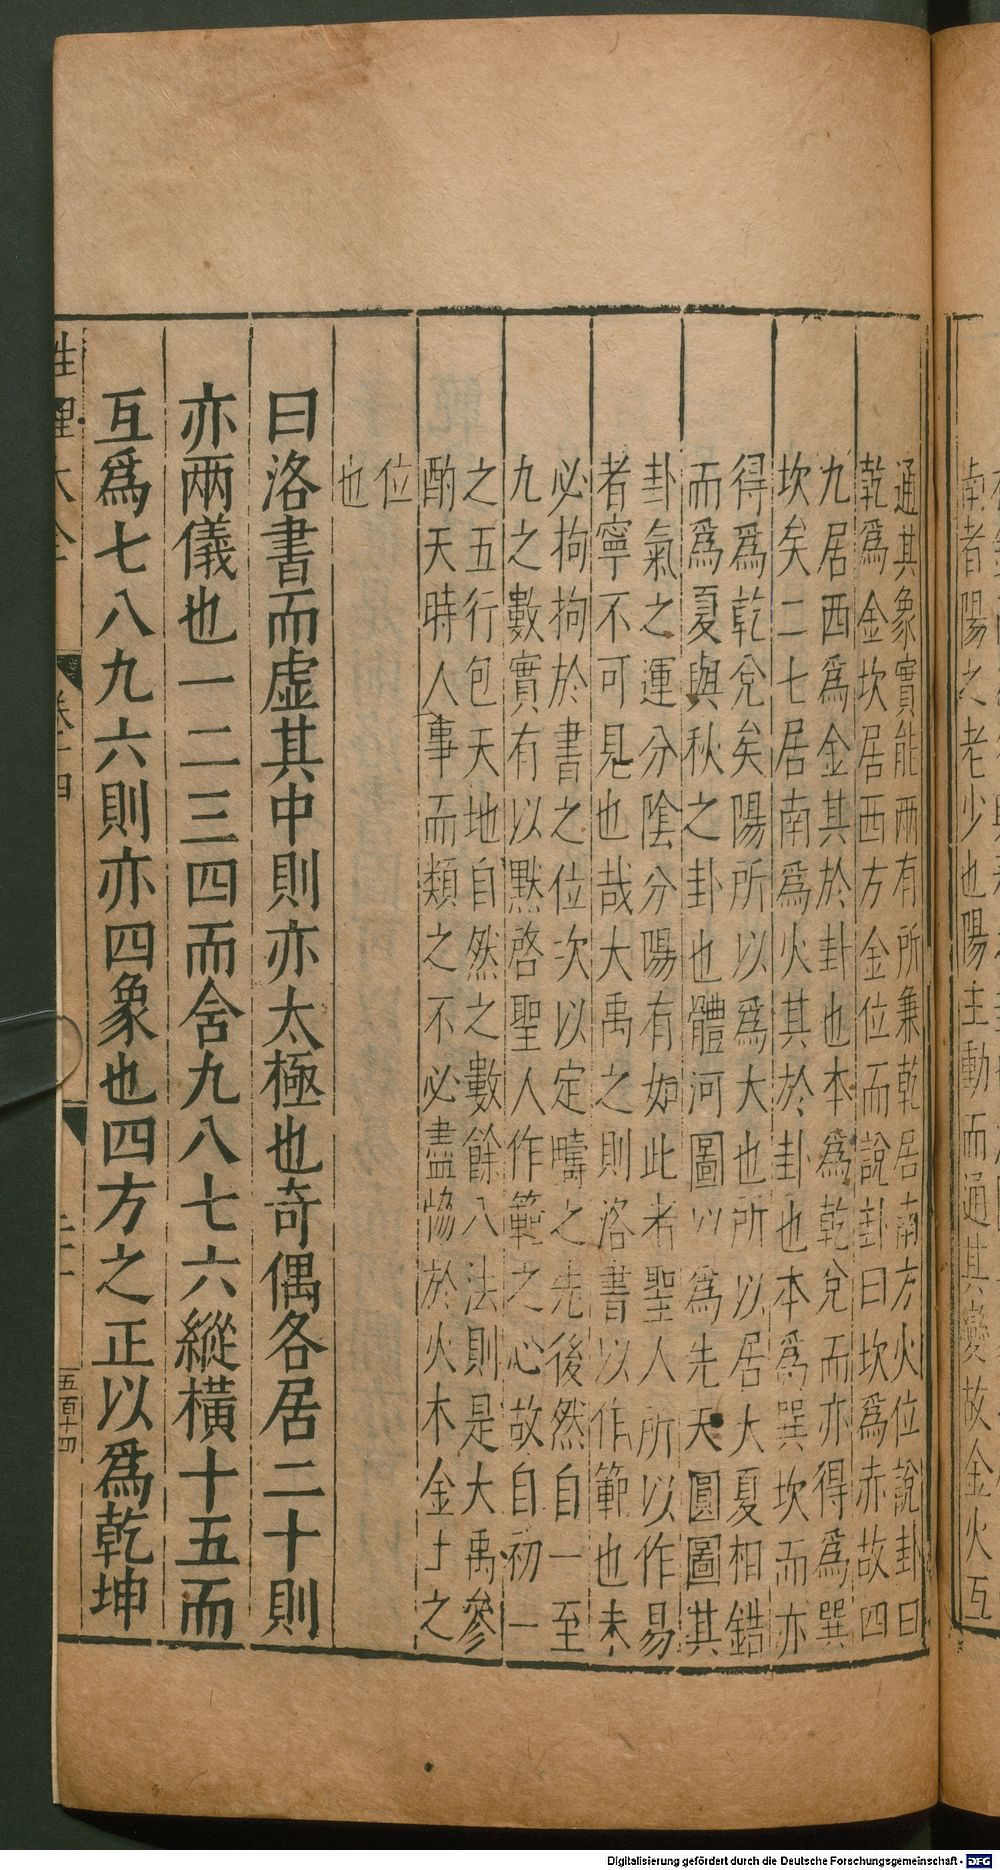 南者陽之老少也陽主動而通其變故金火互
通其象實能兩有所兼乾居南方火位說卦曰
乾爲金坎居西方金位而說卦曰坎爲赤故四
九居西爲金其於卦也本爲乾兌而亦得爲巽
坎矣二七居南爲火其於卦也本爲巽坎而亦
得爲乾兌矣陽所以爲大也所以居大夏相錯
而爲夏與秋之卦也體河圖以爲先天圓圖其
卦氣之運分陰分陽有如此者聖人所以作易
者寧不可見也哉大禹之則洛書以作範也未
必拘拘於書之位次以定疇之先後然自一至
九之數實有以默啓聖人作範之心故自初一
之五行包天地自然之數餘八法則是大禹參
酌天時人事而類之不必盡恊於火木金土之
位
也
曰洛書而虛其中則亦太極也奇偶各居二十則
亦兩儀也一二三四而舍九八七六縱橫十五而
互爲七八九六則亦四象也四方之正以爲乾坤
性理大全
卷十四
五百十四
Digitalisierung gefördert durch die Deutsche Forschungsgemeinschaft - DFG